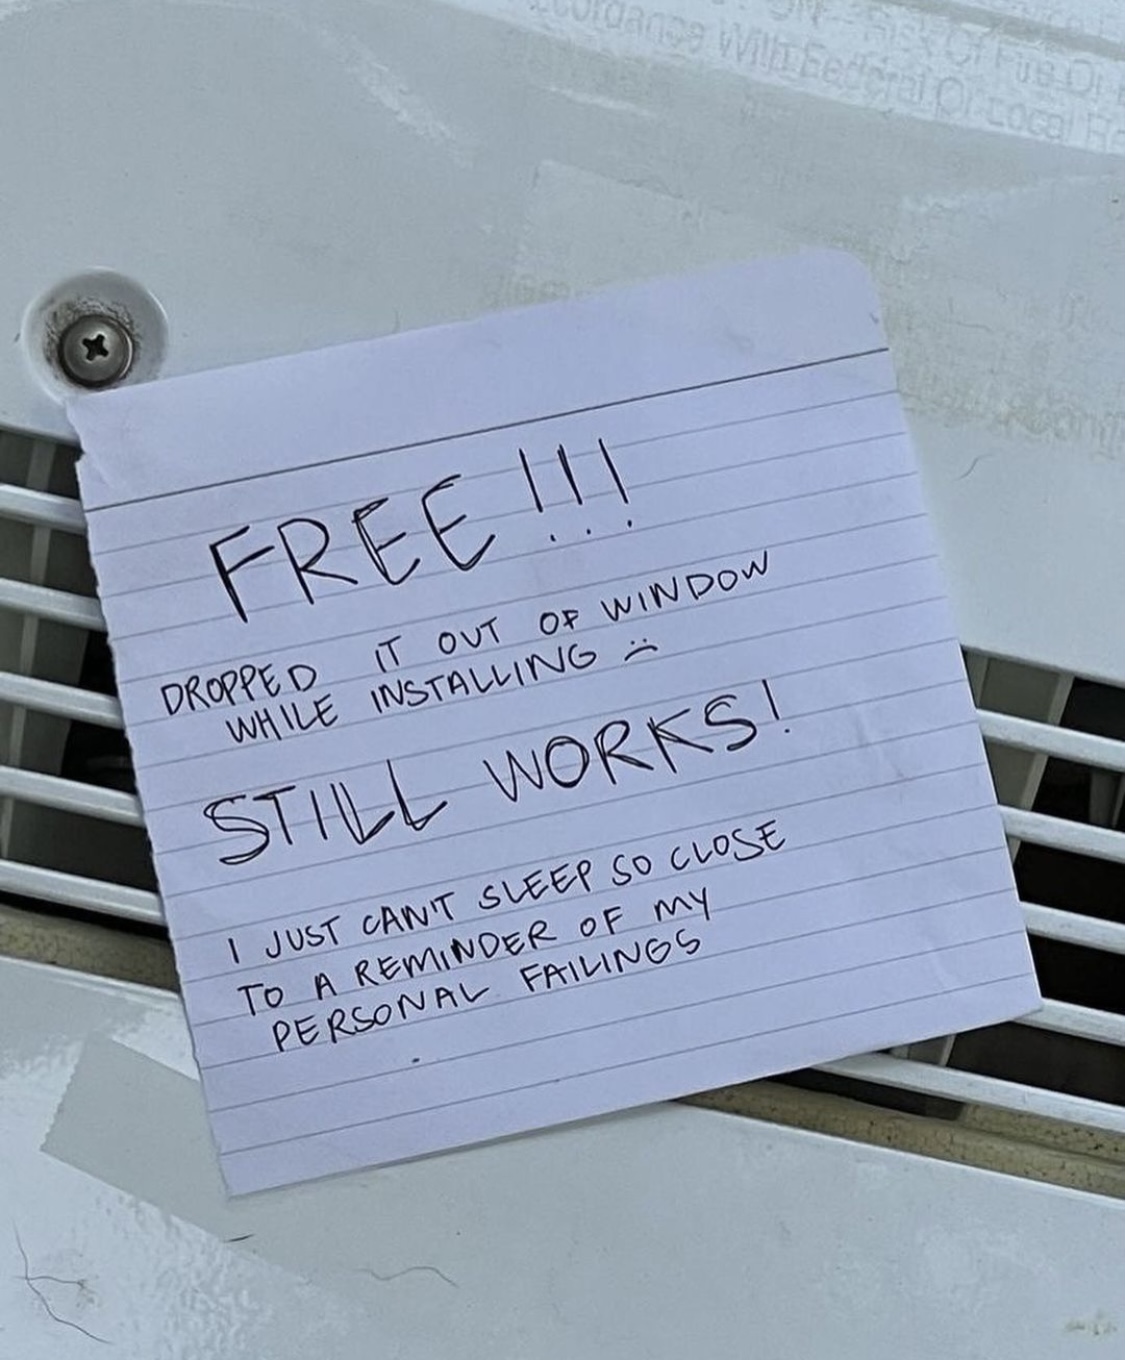 ccordance With Federal Or Local Re
Risk Of Fire Or
FREE!!!
DROPPED IT OUT OF WINDOW
WHILE INSTALLING :(
STILL WORKS!
I JUST CAN'T SLEEP SO CLOSE
TO A REMINDER OF MY
PERSONAL FAILINGS